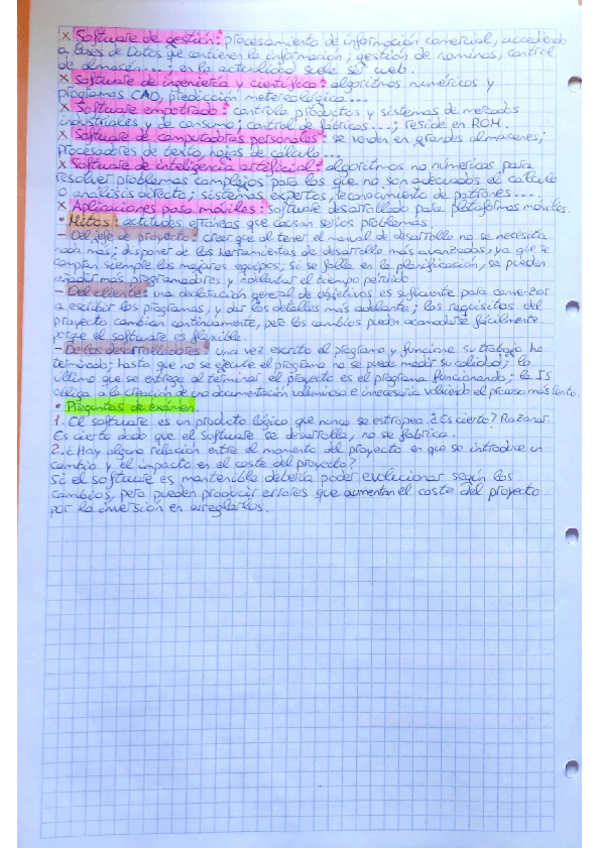 × Software de gestión: procesamiento de información comercial, accediendo
a bases de Datos que contienen la información; gestión de nóminas, control
de almacén.... en la actualidad suele ser web.
× Software de ingeniería y científico: algoritmos numéricos y
programas CAD, predicción meteorológica...
× Software empotrado: controla productos y sistemas de mercados
industriales y de consumo; control de fábricas...; reside en ROM.
× Software de computadoras personales: se venden en grandes almacenes;
procesadores de texto, hojas de cálculo...
× Software de inteligencia artificial: algoritmos no numéricos para
resolver problemas complejos para los que no son adecuados el cálculo
o análisis directo; sistemas expertos, reconocimiento de patrones...
× Aplicaciones para móviles: software desarrollado para plataformas móviles.
• Mitos: actitudes erróneas que causan serios problemas.
- Del jefe de proyecto: creer que al tener el manual de desarrollo no se necesita
nada más; disponer de las herramientas de desarrollo más avanzadas, ya que se
compran siempre los mejores equipos; si se falla en la planificación, se pueden
añadir más programadores y adelantar el tiempo perdido.
- Del cliente: una declaración general de objetivos es suficiente para comenzar
a escribir los programas, y dar los detalles más adelante; los requisitos del
proyecto cambian continuamente, pero los cambios pueden acomodarse fácilmente
porque el software es flexible.
- De los desarrolladores: una vez escrito el programa y funcione su trabajo ha
terminado; hasta que no se ejecute el programa no se puede medir su calidad; lo
último que se entrega al terminar el proyecto es el programa funcionando; la IS
obliga a la creación de una documentación voluminosa e innecesaria volviendo el proceso más lento.
• Preguntas de exámen.
1. El software es un producto lógico que nunca se estropea. ¿Es cierto? Razonar.
Es cierto dado que el software se desarrolla, no se fabrica.
2. ¿Hay alguna relación entre el momento del proyecto en que se introduce un
cambio y el impacto en el coste del proyecto?
Si el software es mantenible debería poder evolucionar según los
cambios, pero pueden producir errores que aumentan el coste del proyecto
por la inversión en arreglarlos.